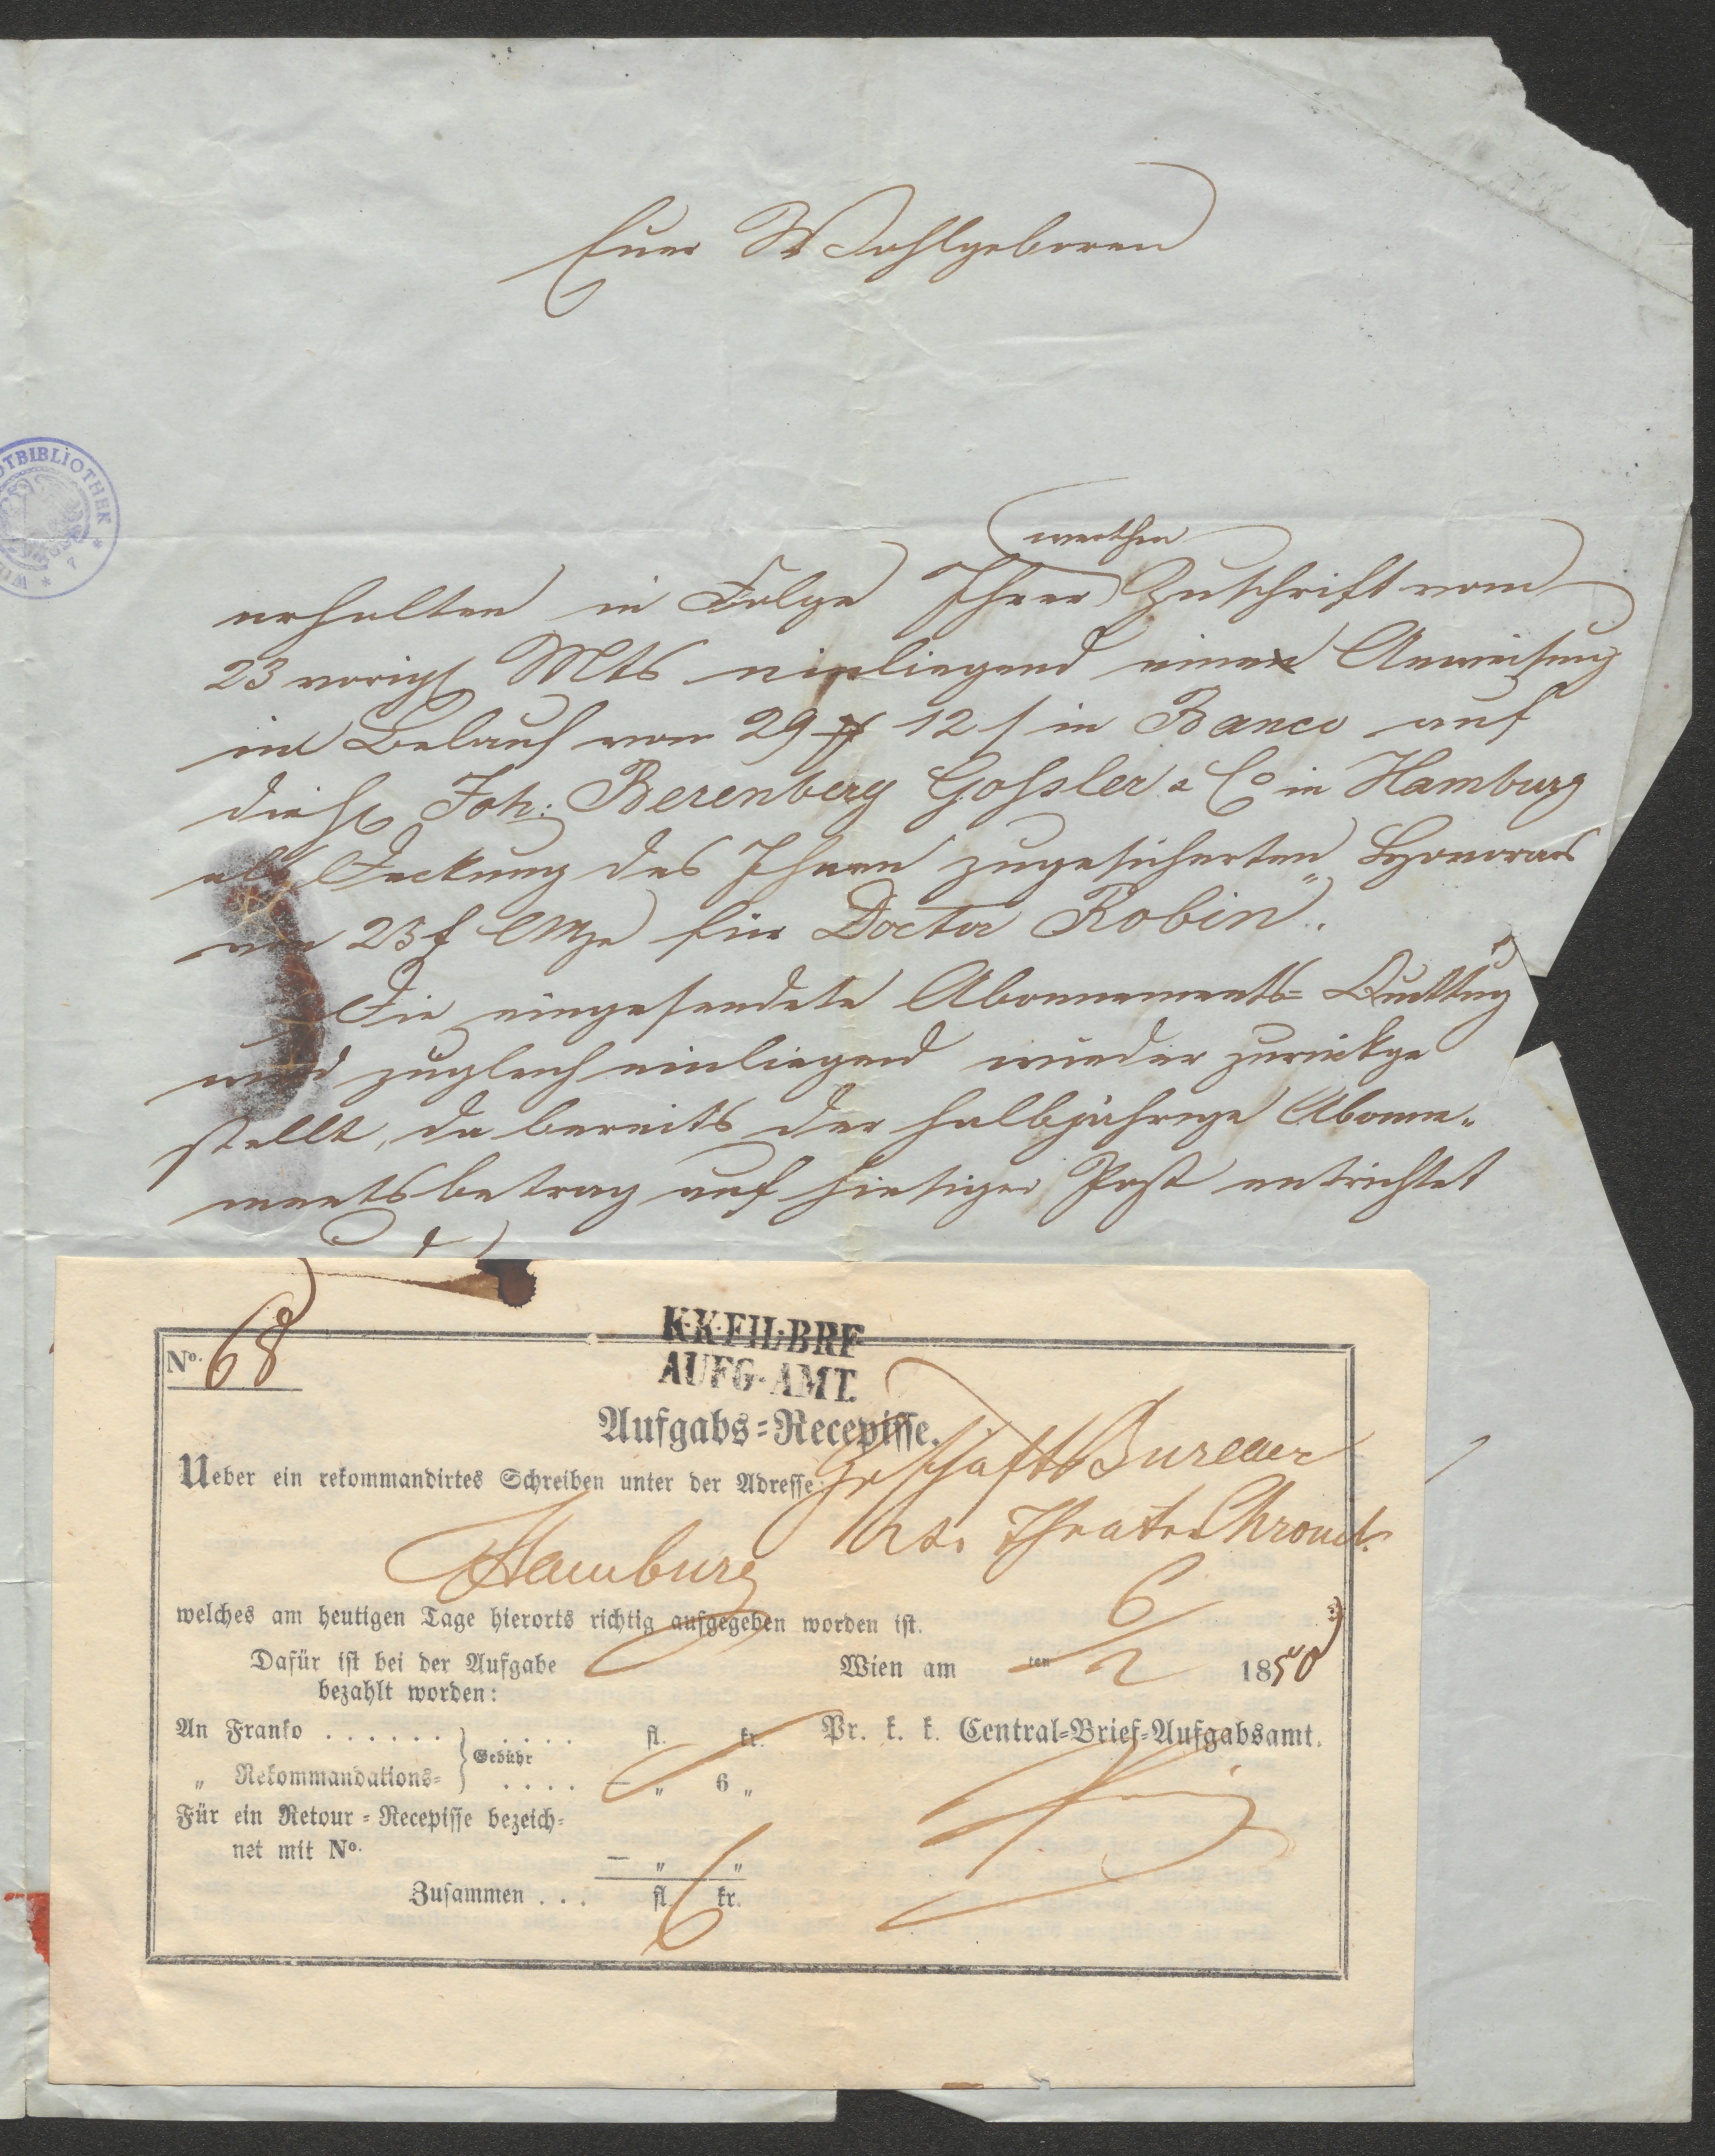 Euer Wohlgeboren
OTBIBLIOTHEK *
werthen
erhalten in Folge Ihrer Zuschrift vom
23 vorig Mts einliegend eine Anweisung
im Belauf von 29 12 in Banco auf
Joh: Berenberg Gossler & Co in Hamburg
als Deckung des Ihnen zugesicherten Honorars
von 25 f CMze für "Doctor Robin".
Die eingesendete Abonnements= Quittug
wird zugleich einliegend wieder zurückge
stellt, da bereits der halbjährige Abonne=
mentsbetrag auf hiesiger Post entrichtet
No. 68
K·K·FIL·BRF
AUFG-AMT.
Aufgabs=Recepisse.
Ueber ein rekommandirtes Schreiben unter der Adresse: Geschäfts Bureau
der Theater Chronik
Hamburg
welches am heutigen Tage hierorts richtig aufgegeben worden ist.
Dafür ist bei der Aufgabe
bezahlt worden:
Wien am 6/2 ten 1850
An Franko . . . . . . . . . . . fl. kr.
Gebühr
„ Rekommandations= . . . . — „ 6 „
Pr. k. k. Central=Brief=Aufgabsamt.
Für ein Retour=Recepisse bezeich=
net mit No. — „ „
Zusammen . . . fl. 6 kr.